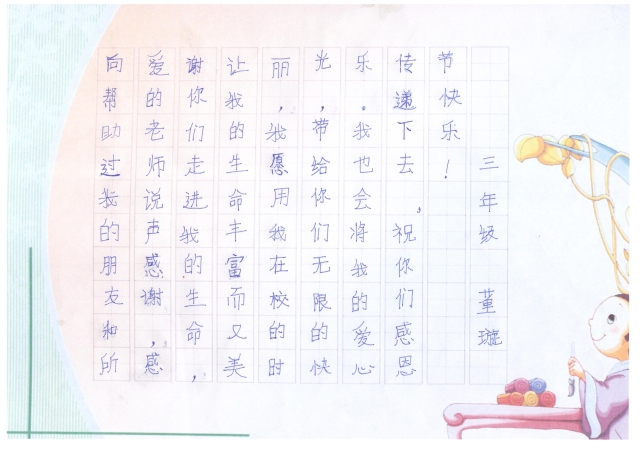 向帮助过我的朋友和所
爱的老师说声感谢，感
谢你们走进我的生命，
让我的生命丰富而又美
丽，我愿用我在校的时
光，带给你们无限的快
乐。我也会将我的爱心
传递下去，祝你们感恩
节快乐！
三年级 董璇